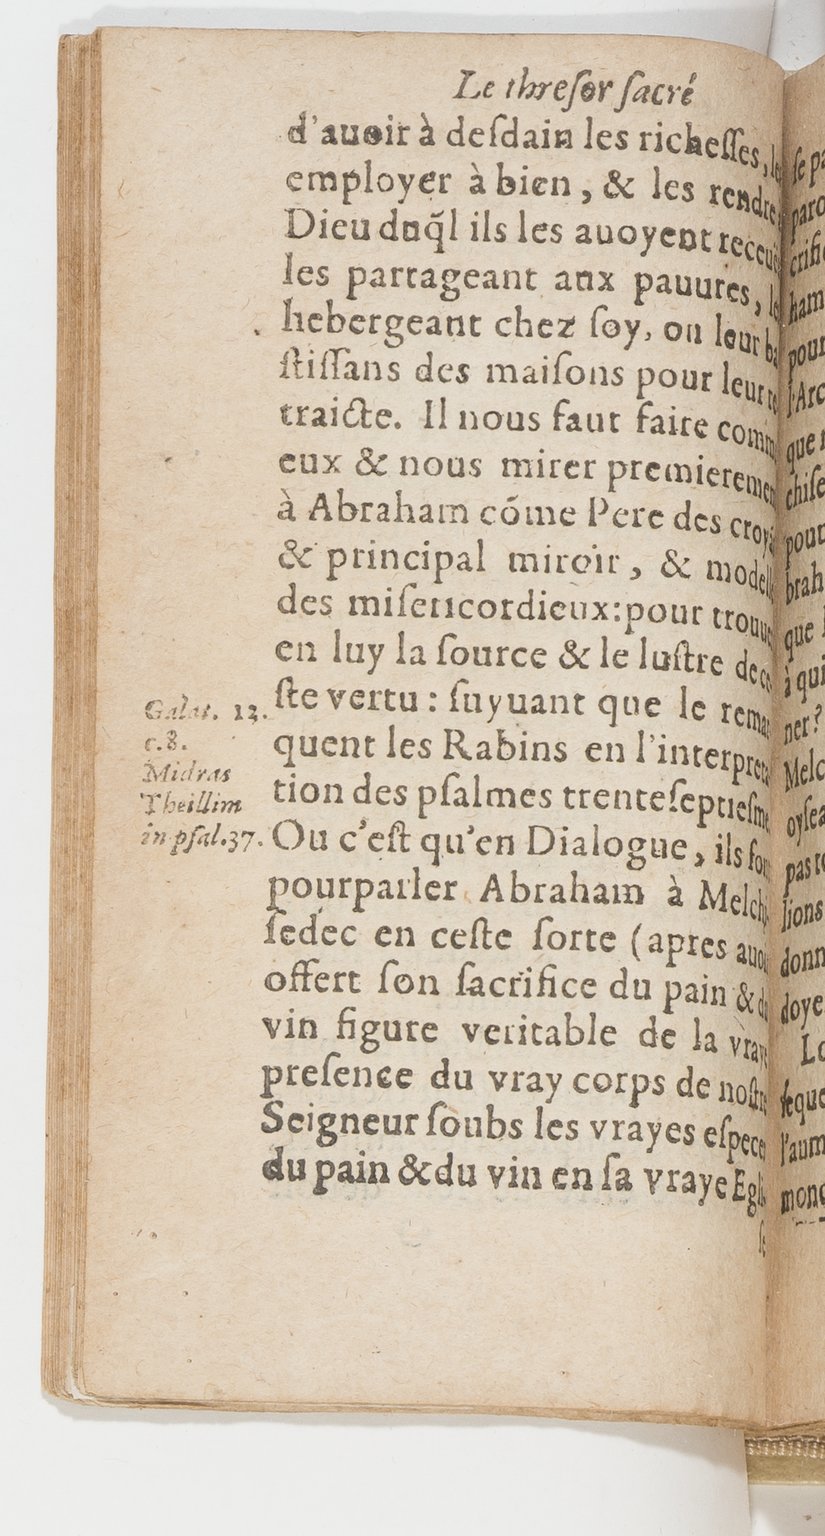 Le threſor ſacré
d'auoir à deſdain les richeſſes,
employer à bien, & les rendre
Dieu duq̃l ils les auoyent receu
les partageant aux pauures,
hebergeant chez ſoy, ou leur
ſtiſſans des maiſons pour leur
traicte. Il nous faut faire comm
eux & nous mirer premieremen
à Abraham cóme Pere des croy
& principal miroir, & modell
des miſericordieux: pour trouu
en luy la ſource & le luſtre de ce
ſte vertu: ſuyuant que le remar
Galat. 12.
c.8.
Midras
Theillim
in pſal.37.
quent les Rabins en l'interpreta
tion des pſalmes trenteſeptieſme
Ou c'eſt qu'en Dialogue, ils fon
pourparler Abraham à Melchi
ſedec en ceſte ſorte (apres auoi
offert ſon ſacrifice du pain & du
vin figure veritable de la vraye
preſence du vray corps de noſtre
Seigneur ſoubs les vrayes eſpeces
du pain & du vin en ſa vraye Egli
ſe
ſe pa
paro
crifi
ham
pour
l'Arc
que
chiſe
pour
brah
que
à qui
ner?
Melc
oyſea
pas
lions
donn
doye
ſeque
l'aum
mond